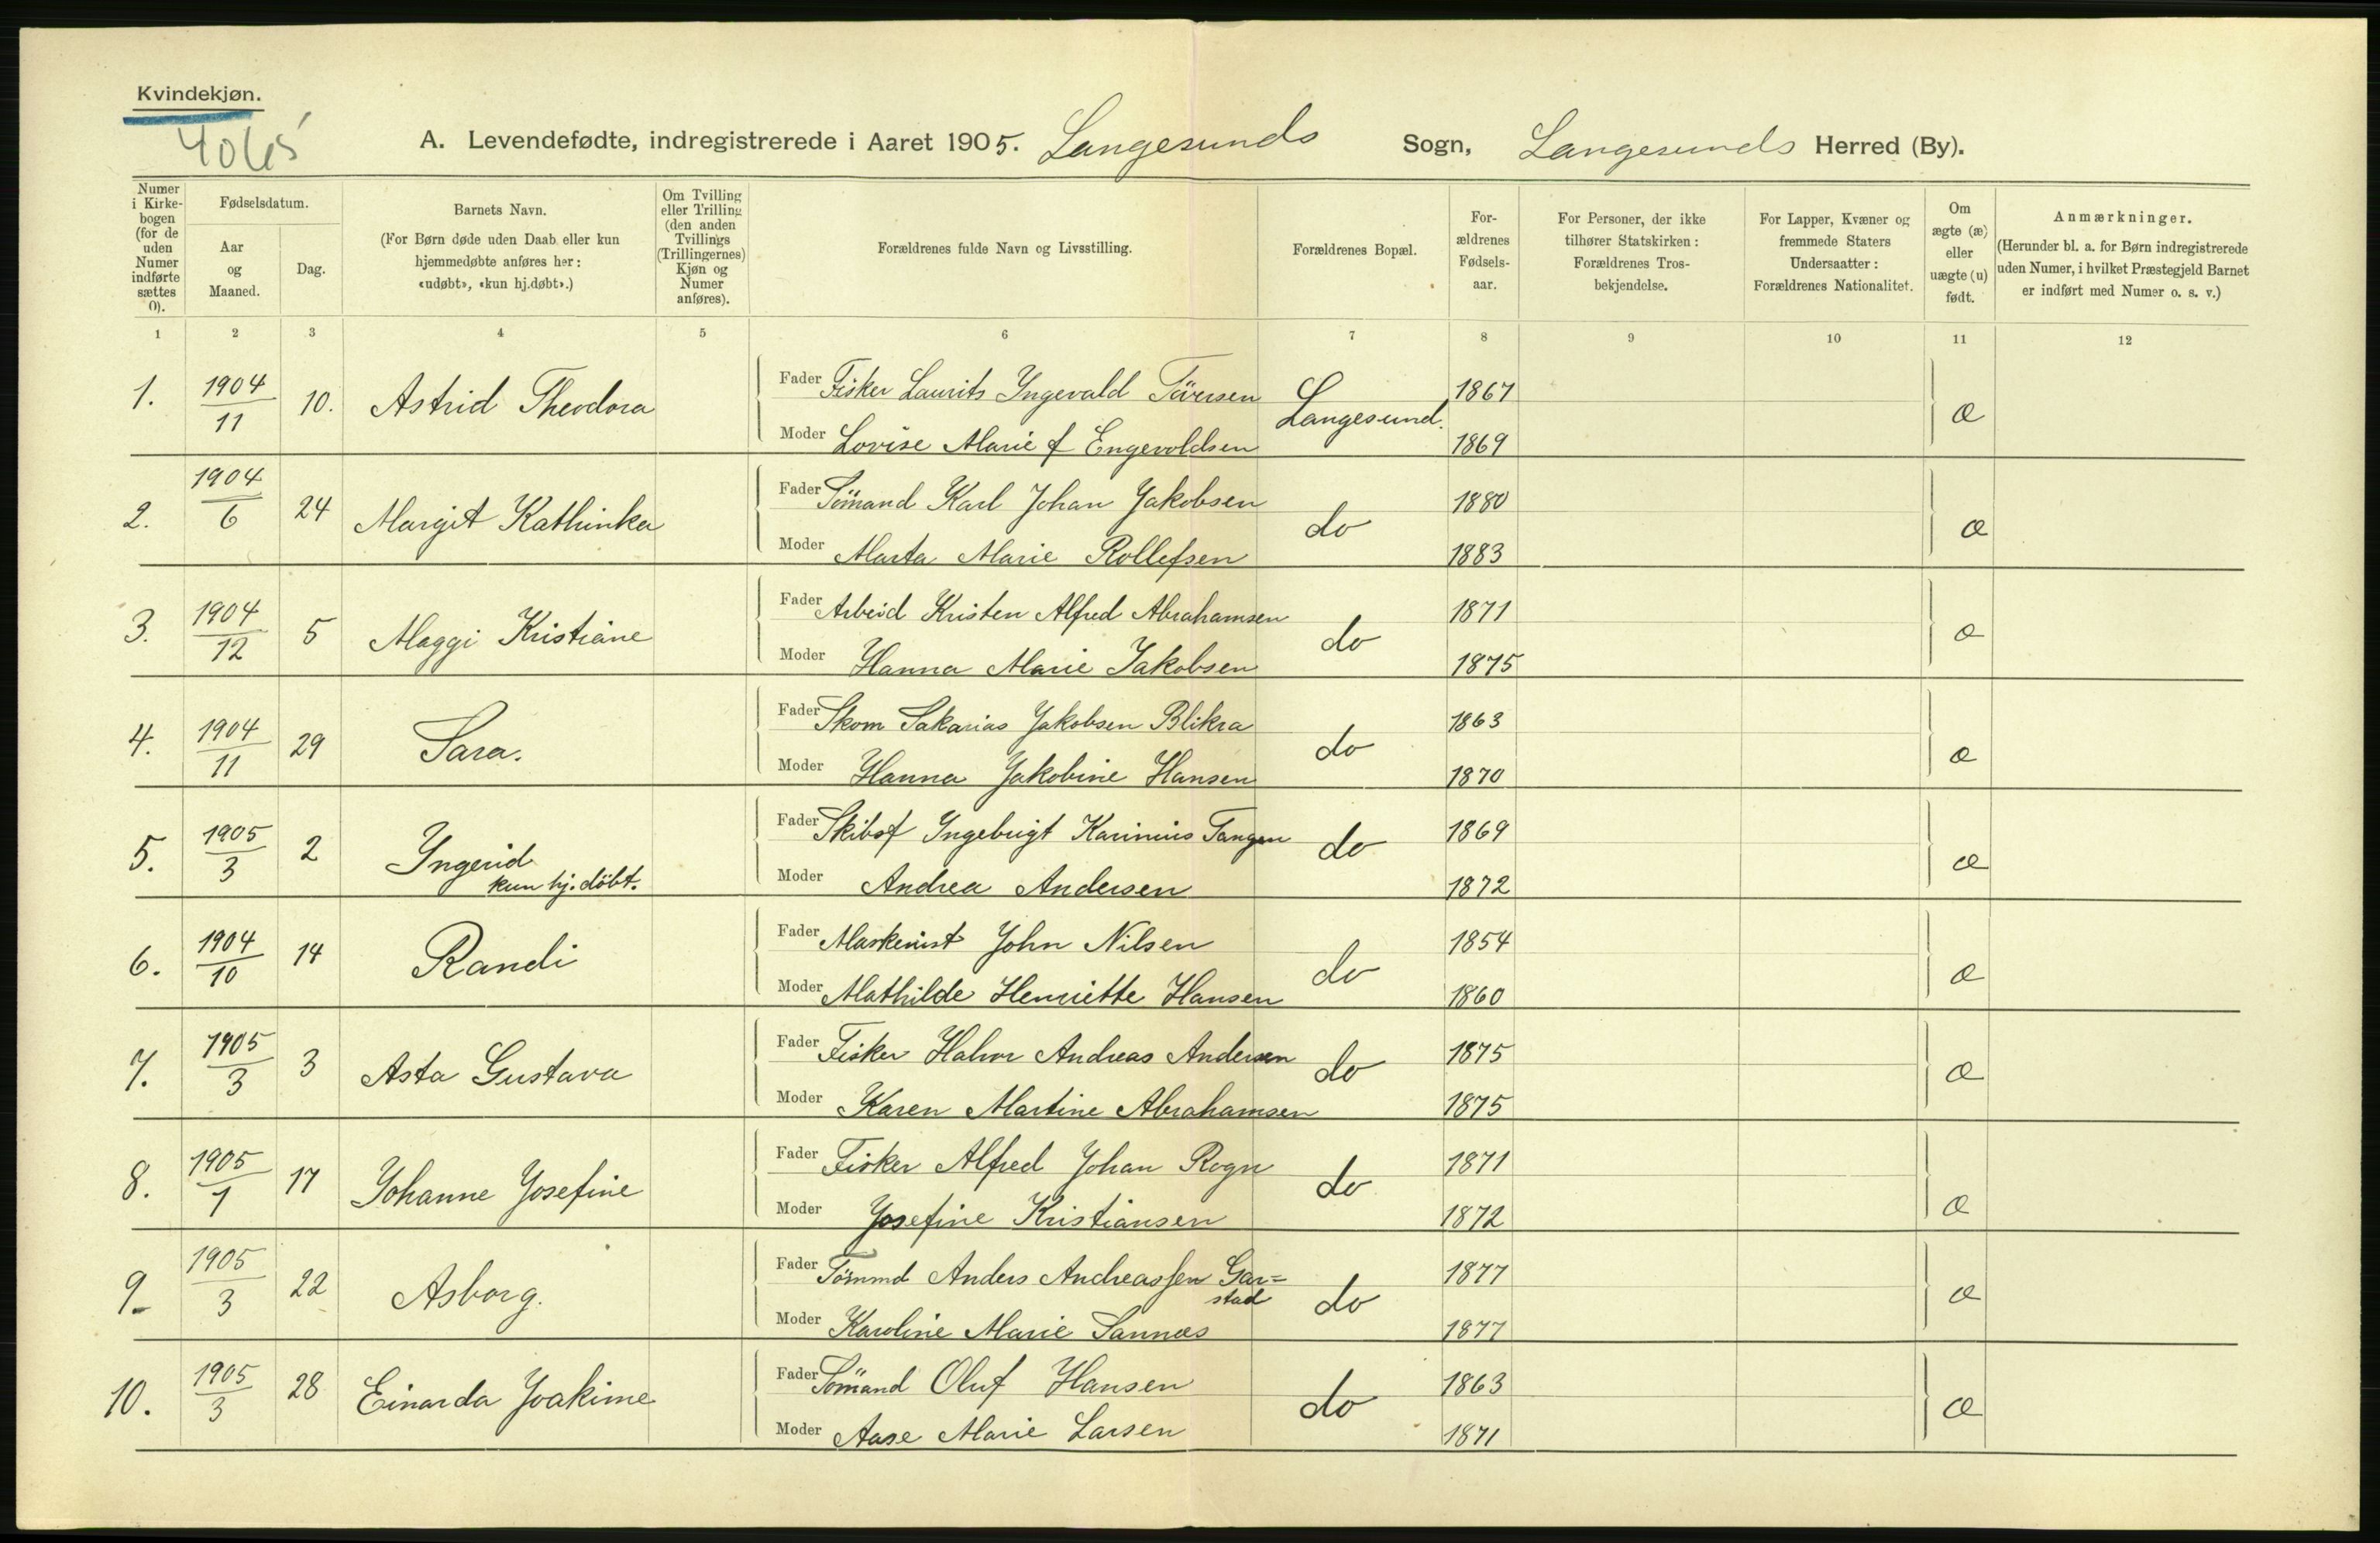 Kvindekjøn.
A. Levendefødte, indregistrerede i Aaret 1905. Langesunds Sogn, Langesunds Herred (By).
Numer i Kirkebogen (for de uden Numer indførte sættes 0).
Fødselsdatum.
Aar og Maaned.
Dag.
Barnets Navn.
(For Børn døde uden Daab eller kun hjemmedøbte anføres her: «udøbt», «kun hj.døbt».)
Om Tvilling eller Trilling (den anden Tvillings (Trillingernes) Kjøn og Numer anføres).
Forældrenes fulde Navn og Livsstilling.
Forældrenes Bopæl.
Forældrenes Fødselsaar.
For Personer, der ikke tilhører Statskirken: Forældrenes Trosbekjendelse.
For Lapper, Kvæner og fremmede Staters Undersaatter: Forældrenes Nationalitet.
Om ægte (æ) eller uægte (u) født.
Anmærkninger.
(Herunder bl. a. for Børn indregistrerede uden Numer, i hvilket Præstegjeld Barnet er indført med Numer o. s. v.)
1 2 3 4 5 6 7 8 9 10 11 12
1. 1904/11 10. Astrid Theodora Fader Fisker Laurits Yngevald Langesund. 1867 æ
Moder Lovise Marie f Engevoldsen 1869
2. 1904/6 24 Margit Kathinka Fader Sömand Karl Johan Jakobsen do 1880 æ
Moder Marta Marie Rollefsen 1883
3. 1904/12 5 Maggi Kristiane Fader Arbeid Kristen Alfred Abrahamsen do 1871 æ
Moder Hanna Marie Jakobsen 1875
4. 1904/11 29 Sara. Fader Skom Sakarias Jakobsen Blikra do 1863 æ
Moder Hanna Jakobine Hansen 1870
5. 1905/3 2 Yngerid Fader Skibsf Yngebrigt Karinius Tangen do 1869 æ
kun hj. döbt. Moder Andrea Andersen 1872
6. 1904/10 14 Randi Fader Maskinist John Nilsen do 1854 æ
Moder Mathilde Henriette Hansen 1860
7. 1905/3 3 Asta Gustava Fader Fisker Halvor Andreas Andersen do 1875 æ
Moder Karen Martine Abrahamsen 1875
8. 1905/1 17 Johanne Josefine Fader Fisker Alfred Johan Rogn do 1871 æ
Moder Josefine Kristiansen 1872
9. 1905/3 22 Asborg. Fader Anders Andreassen Gar=
stad do 1877 æ
Moder Karoline Marie Sannæs 1877
10. 1905/3 28 Einarda Joakime Fader Sömand Oluf Hansen do 1863 æ
Moder Aase Marie Larsen 1871